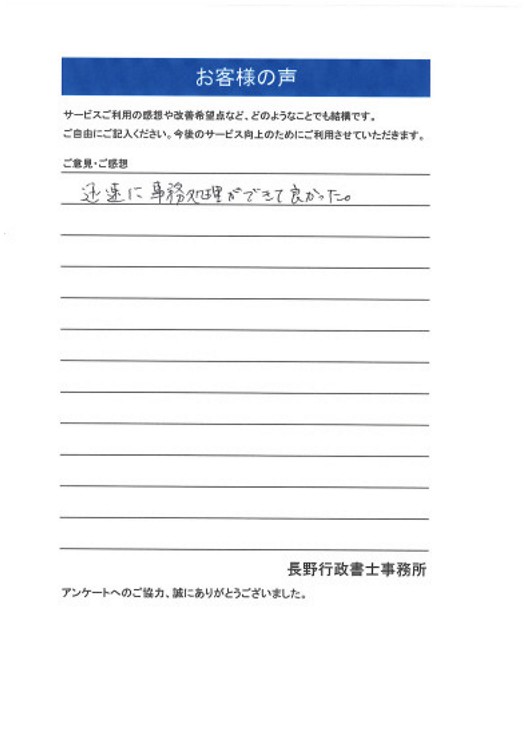 お客様の声
サービスご利用の感想や改善希望点など、どのようなことでも結構です。
ご自由にご記入ください。今後のサービス向上のためにご利用させていただきます。
ご意見・ご感想
迅速に事務処理ができて良かった。
長野行政書士事務所
アンケートへのご協力、誠にありがとうございました。